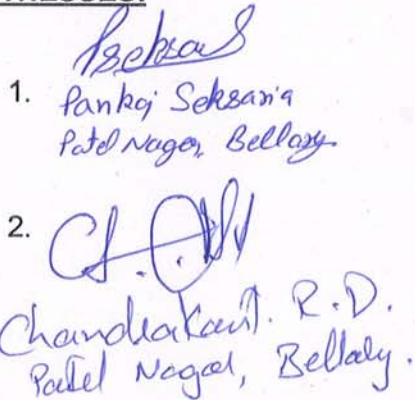 1.
Pankaj Seksaria
Patel Nagar, Bellary
2.
Chandrakant. R.D.
Patel Nagar, Bellary.